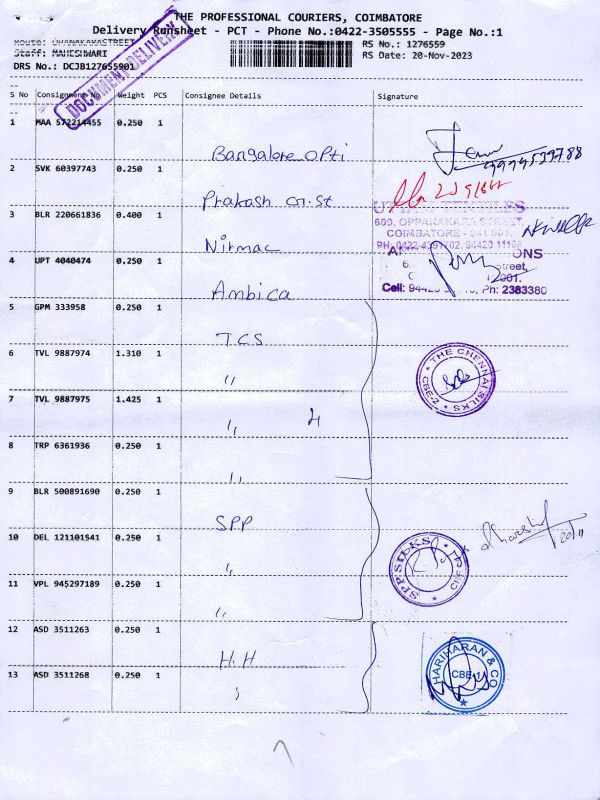 THE PROFESSIONAL COURIERS, COIMBATORE
Delivery Runsheet - PCT - Phone No.:0422-3505555 - Page No.:1
Staff: MAHESHWARI
RS No.: 1276559
RS Date: 20-Nov-2023
DRS No.: DCJB127655901
DOCUMENT DELIVERY
S No Consignment No Weight PCS Consignee Details Signature
1 MAA 572214455 0.250 1
Bangalore Opti
9994539788
2 SVK 60397743 0.250 1
Prakash
3 BLR 220661836 0.400 1
600, OPPANAKARA STREET
COIMBATORE - 641 001.
Nirmac
4 UPT 4040474 0.250 1
ONS
Street,
Cell: Ph: 2383380
Ambica
5 GPM 333958 0.250 1
TCS
6 TVL 9887974 1.310 1
THE CHENNAI SILKS
CBE-2
"
7 TVL 9887975 1.425 1
" 4
8 TRP 6361936 0.250 1
"
9 BLR 500891690 0.250 1
SPP
10 DEL 121101541 0.250 1
SPP SILKS
CBE
20/11
"
11 VPL 945297189 0.250 1
"
12 ASD 3511263 0.250 1
H.H
HARIHARAN & CO
CBE-1
13 ASD 3511268 0.250 1